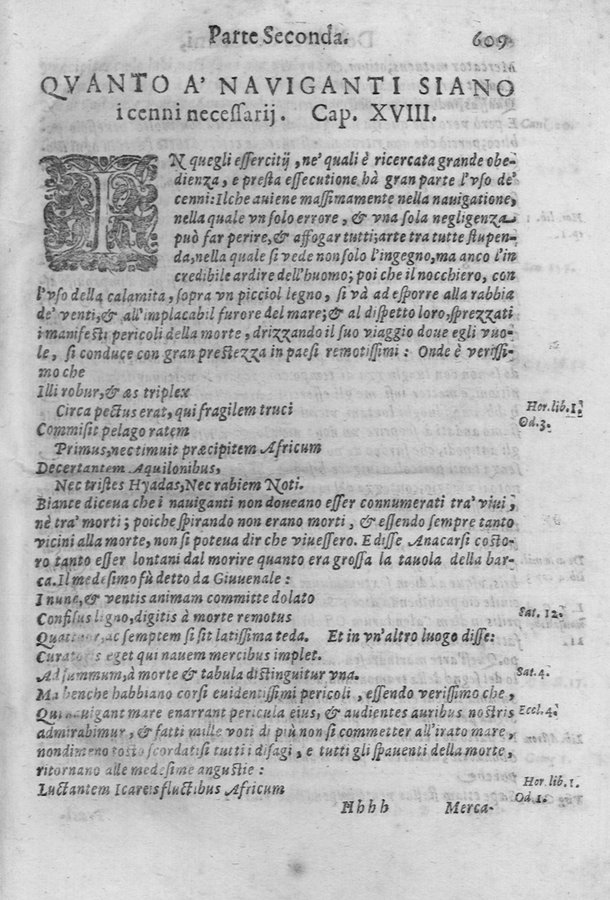 Parte Seconda. 609
QVANTO A' NAVIGANTI SIANO
i cenni necessarij. Cap. XVIII.
IN quegli essercitij, ne' quali è ricercata grande obe-
dienza, e presta essecutione hà gran parte l'vso de'
cenni: Ilche auiene massimamente nella nauigatione,
nella quale vn solo errore, & vna sola negligenza
può far perire, & affogar tutti; arte tra tutte stupen-
da, nella quale si vede non solo l'ingegno, ma anco l'in
credibile ardire dell'huomo; poi che il nocchiero, con
l'vso della calamita, sopra vn picciol legno, si và ad esporre alla rabbia
de' venti, & all'implacabil furore del mare; & al dispetto loro, sprezzati
i manifesti pericoli della morte, drizzando il suo viaggio doue egli vuo-
le, si conduce con gran prestezza in paesi remotissimi: Onde è verissi-
mo che
Illi robur, & æs triplex
Circa pectus erat, qui fragilem truci Hor. lib. 1.
Commisit pelago ratem Od. 3.
Primus, nec timuit præcipitem Africum
Decertantem Aquilonibus,
Nec tristes Hyadas, Nec rabiem Noti.
Biante diceua che i nauiganti non doueano esser connumerati tra' viui,
nè tra' morti; poiche spirando non erano morti, & essendo sempre tanto
vicini alla morte, non si poteua dir che viuessero. E disse Anacarsi costo-
ro tanto esser lontani dal morire quanto era grossa la tauola della bar-
ca. Il medesimo fù detto da Giuuenale:
I nunc, & ventis animam committe dolato
Confisus ligno, digitis à morte remotus Sat. 12.
Quattuor, ac semptem si sit latissima teda. Et in vn'altro luogo disse:
Curatoris eget qui nauem mercibus implet.
Ad summum, à morte & tabula distinguitur vna. Sat. 4.
Ma benche habbiano corsi euidentissimi pericoli, essendo verissimo che,
Qui nauigant mare enarrant pericula eius, & audientes auribus nostris Eccl. 4.
admirabimur, & fatti mille voti di più non si commetter all'irato mare,
nondimeno tosto scordatisi tutti i disagi, e tutti gli spauenti della morte,
ritornano alle medesime angustie:
Luctantem Icareis fluctibus Africum Hor. lib. 1.
Od. 1.
Hhhh Merca-